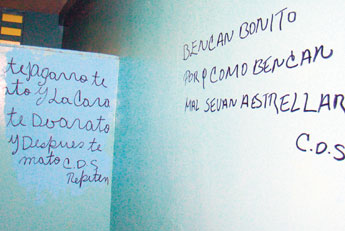 te Agarro te
ato Y La Cara
te Devarato
Y Despues te
mato C.D.S
Repiten
BENCAN BONITO
POR P COMO BENCAN
MAL SEVAN A ESTRELLAR
C.D.S